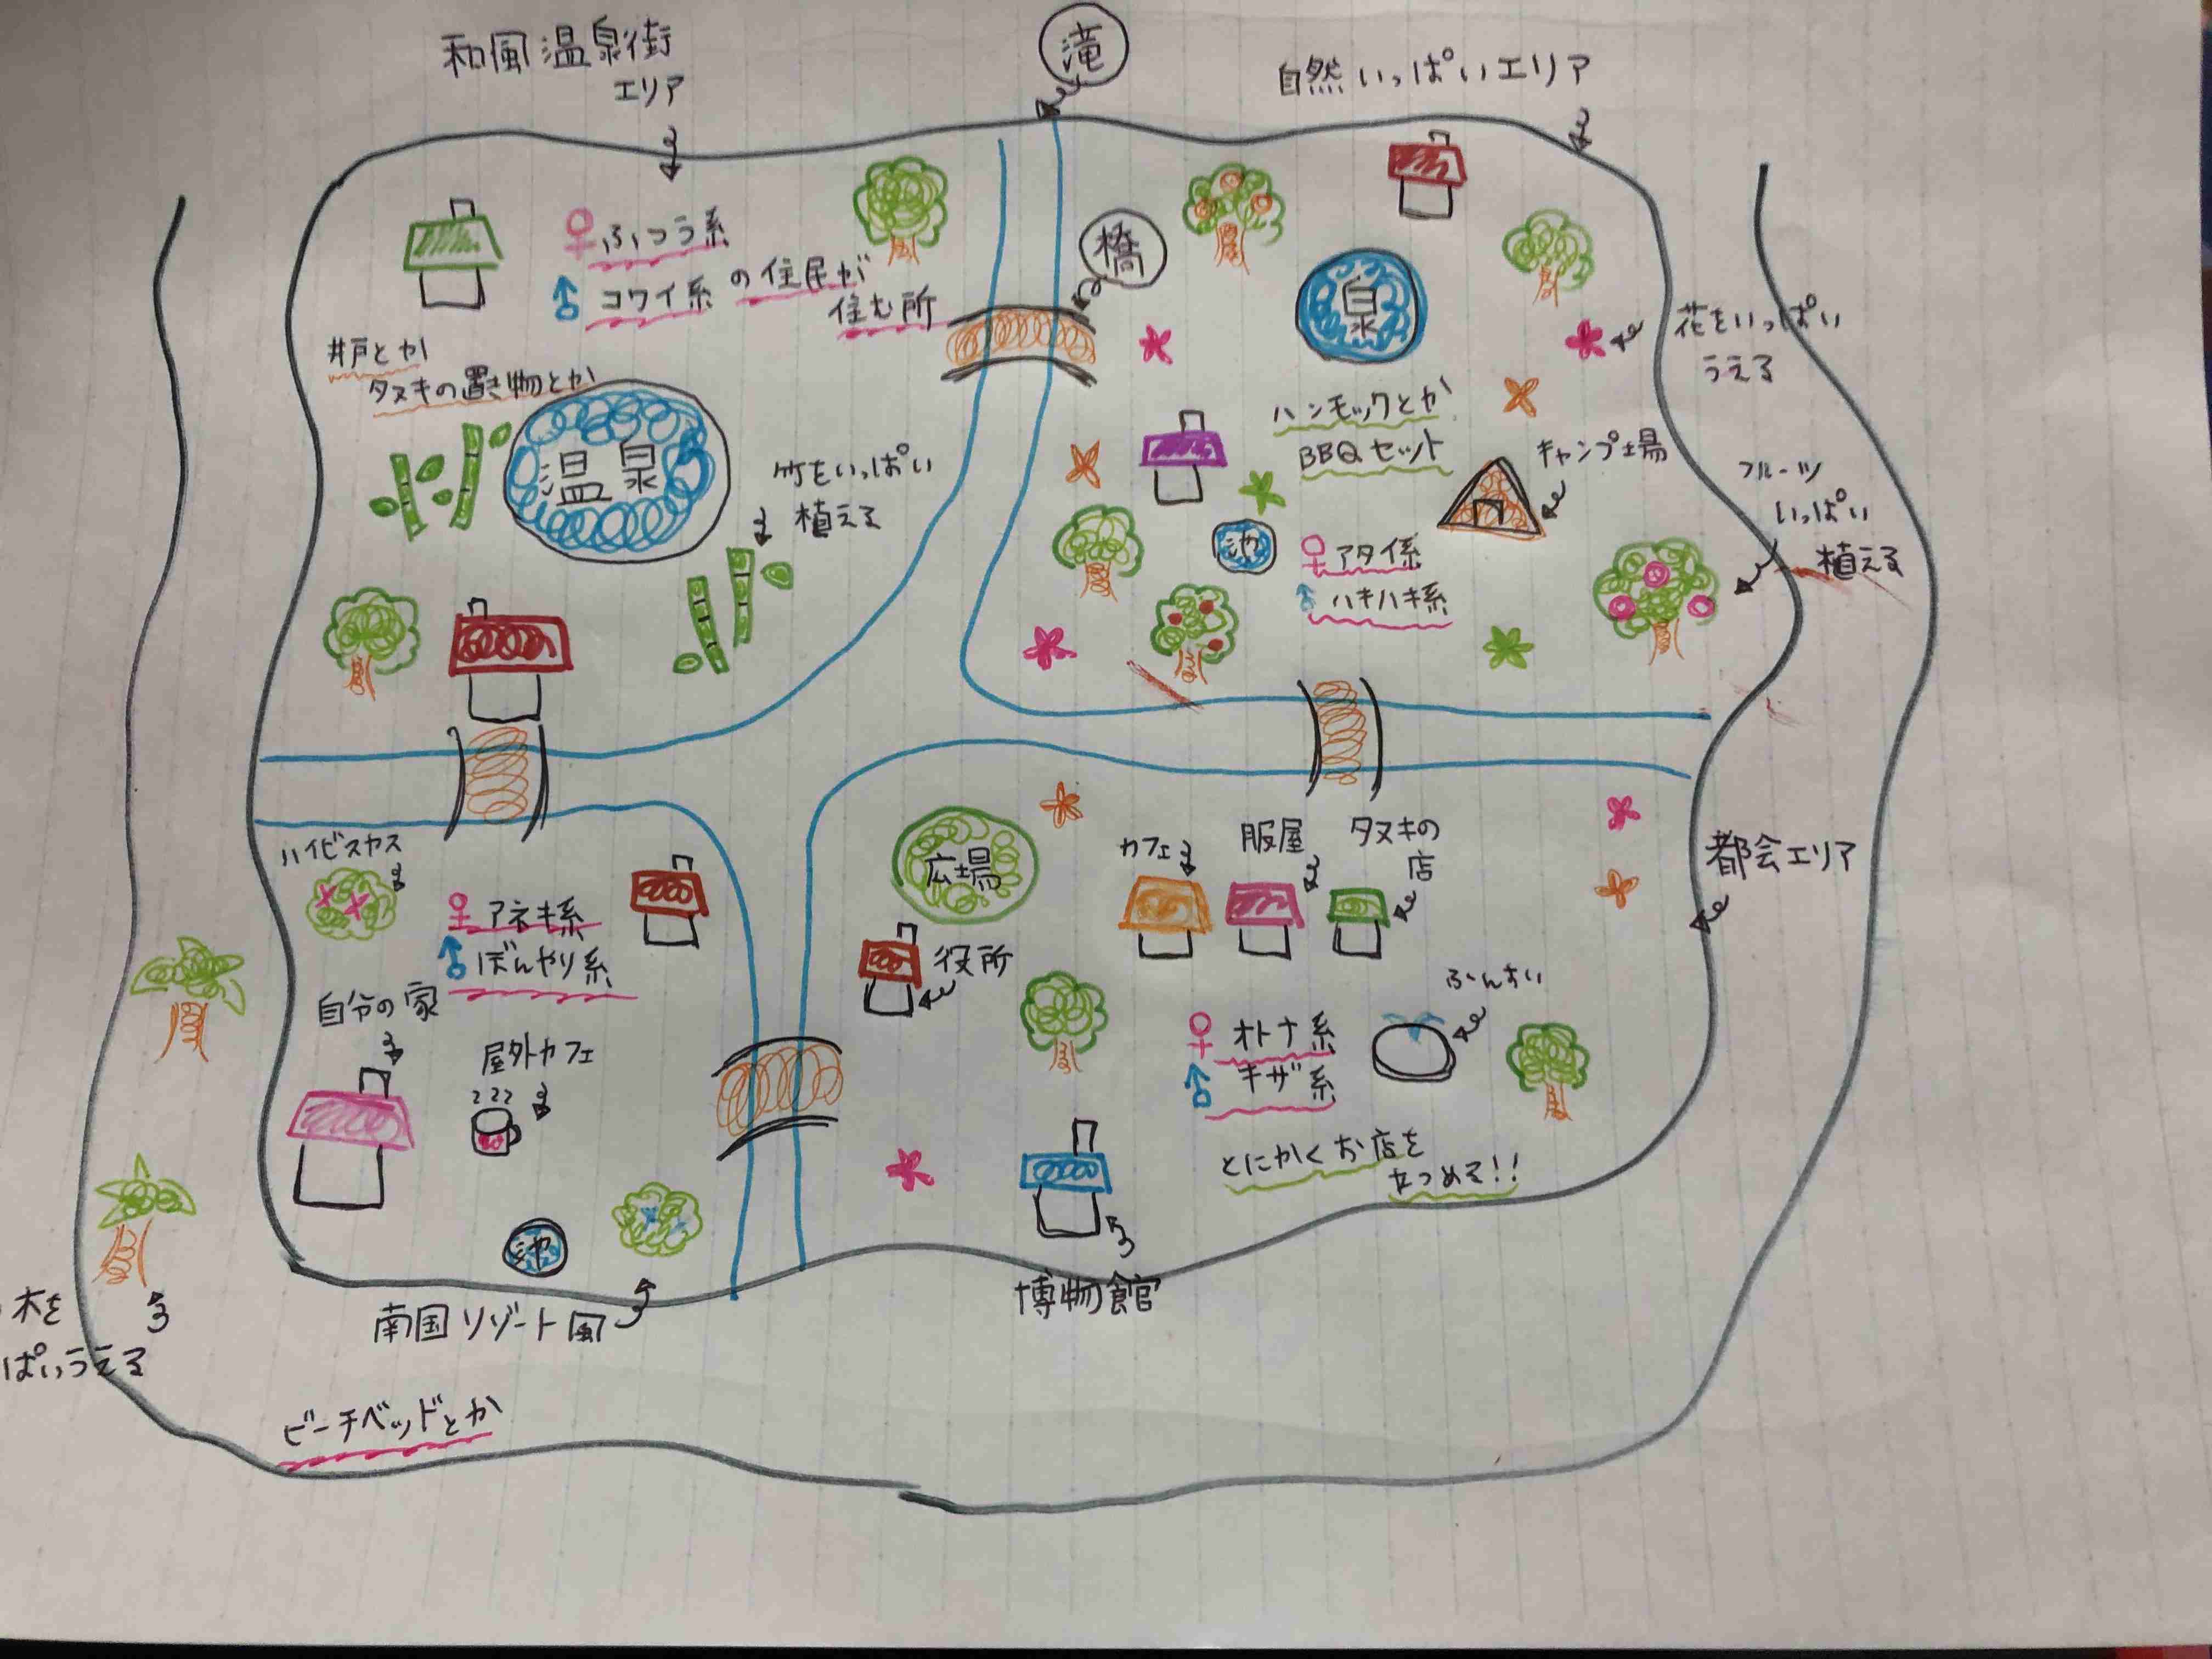 和風温泉街
エリア
滝
自然いっぱいエリア
♀ふつう系
♂コワイ系の住民が
住む所
橋
泉
花をいっぱい
うえる
井戸とか
タヌキの置き物とか
温泉
竹をいっぱい
植える
ハンモックとか
BBQセット
キャンプ場
フルーツ
いっぱい
植える
池
♀アタイ系
♂ハキハキ系
ハイビスカス
♀アネキ系
♂ぼんやり系
自分の家
屋外カフェ
池
南国リゾート風
広場
役所
カフェ
服屋
タヌキの
店
都会エリア
ふんすい
♀オトナ系
♂キザ系
とにかくお店を
あつめる!!
博物館
木を
ぱいうえる
ビーチベッドとか